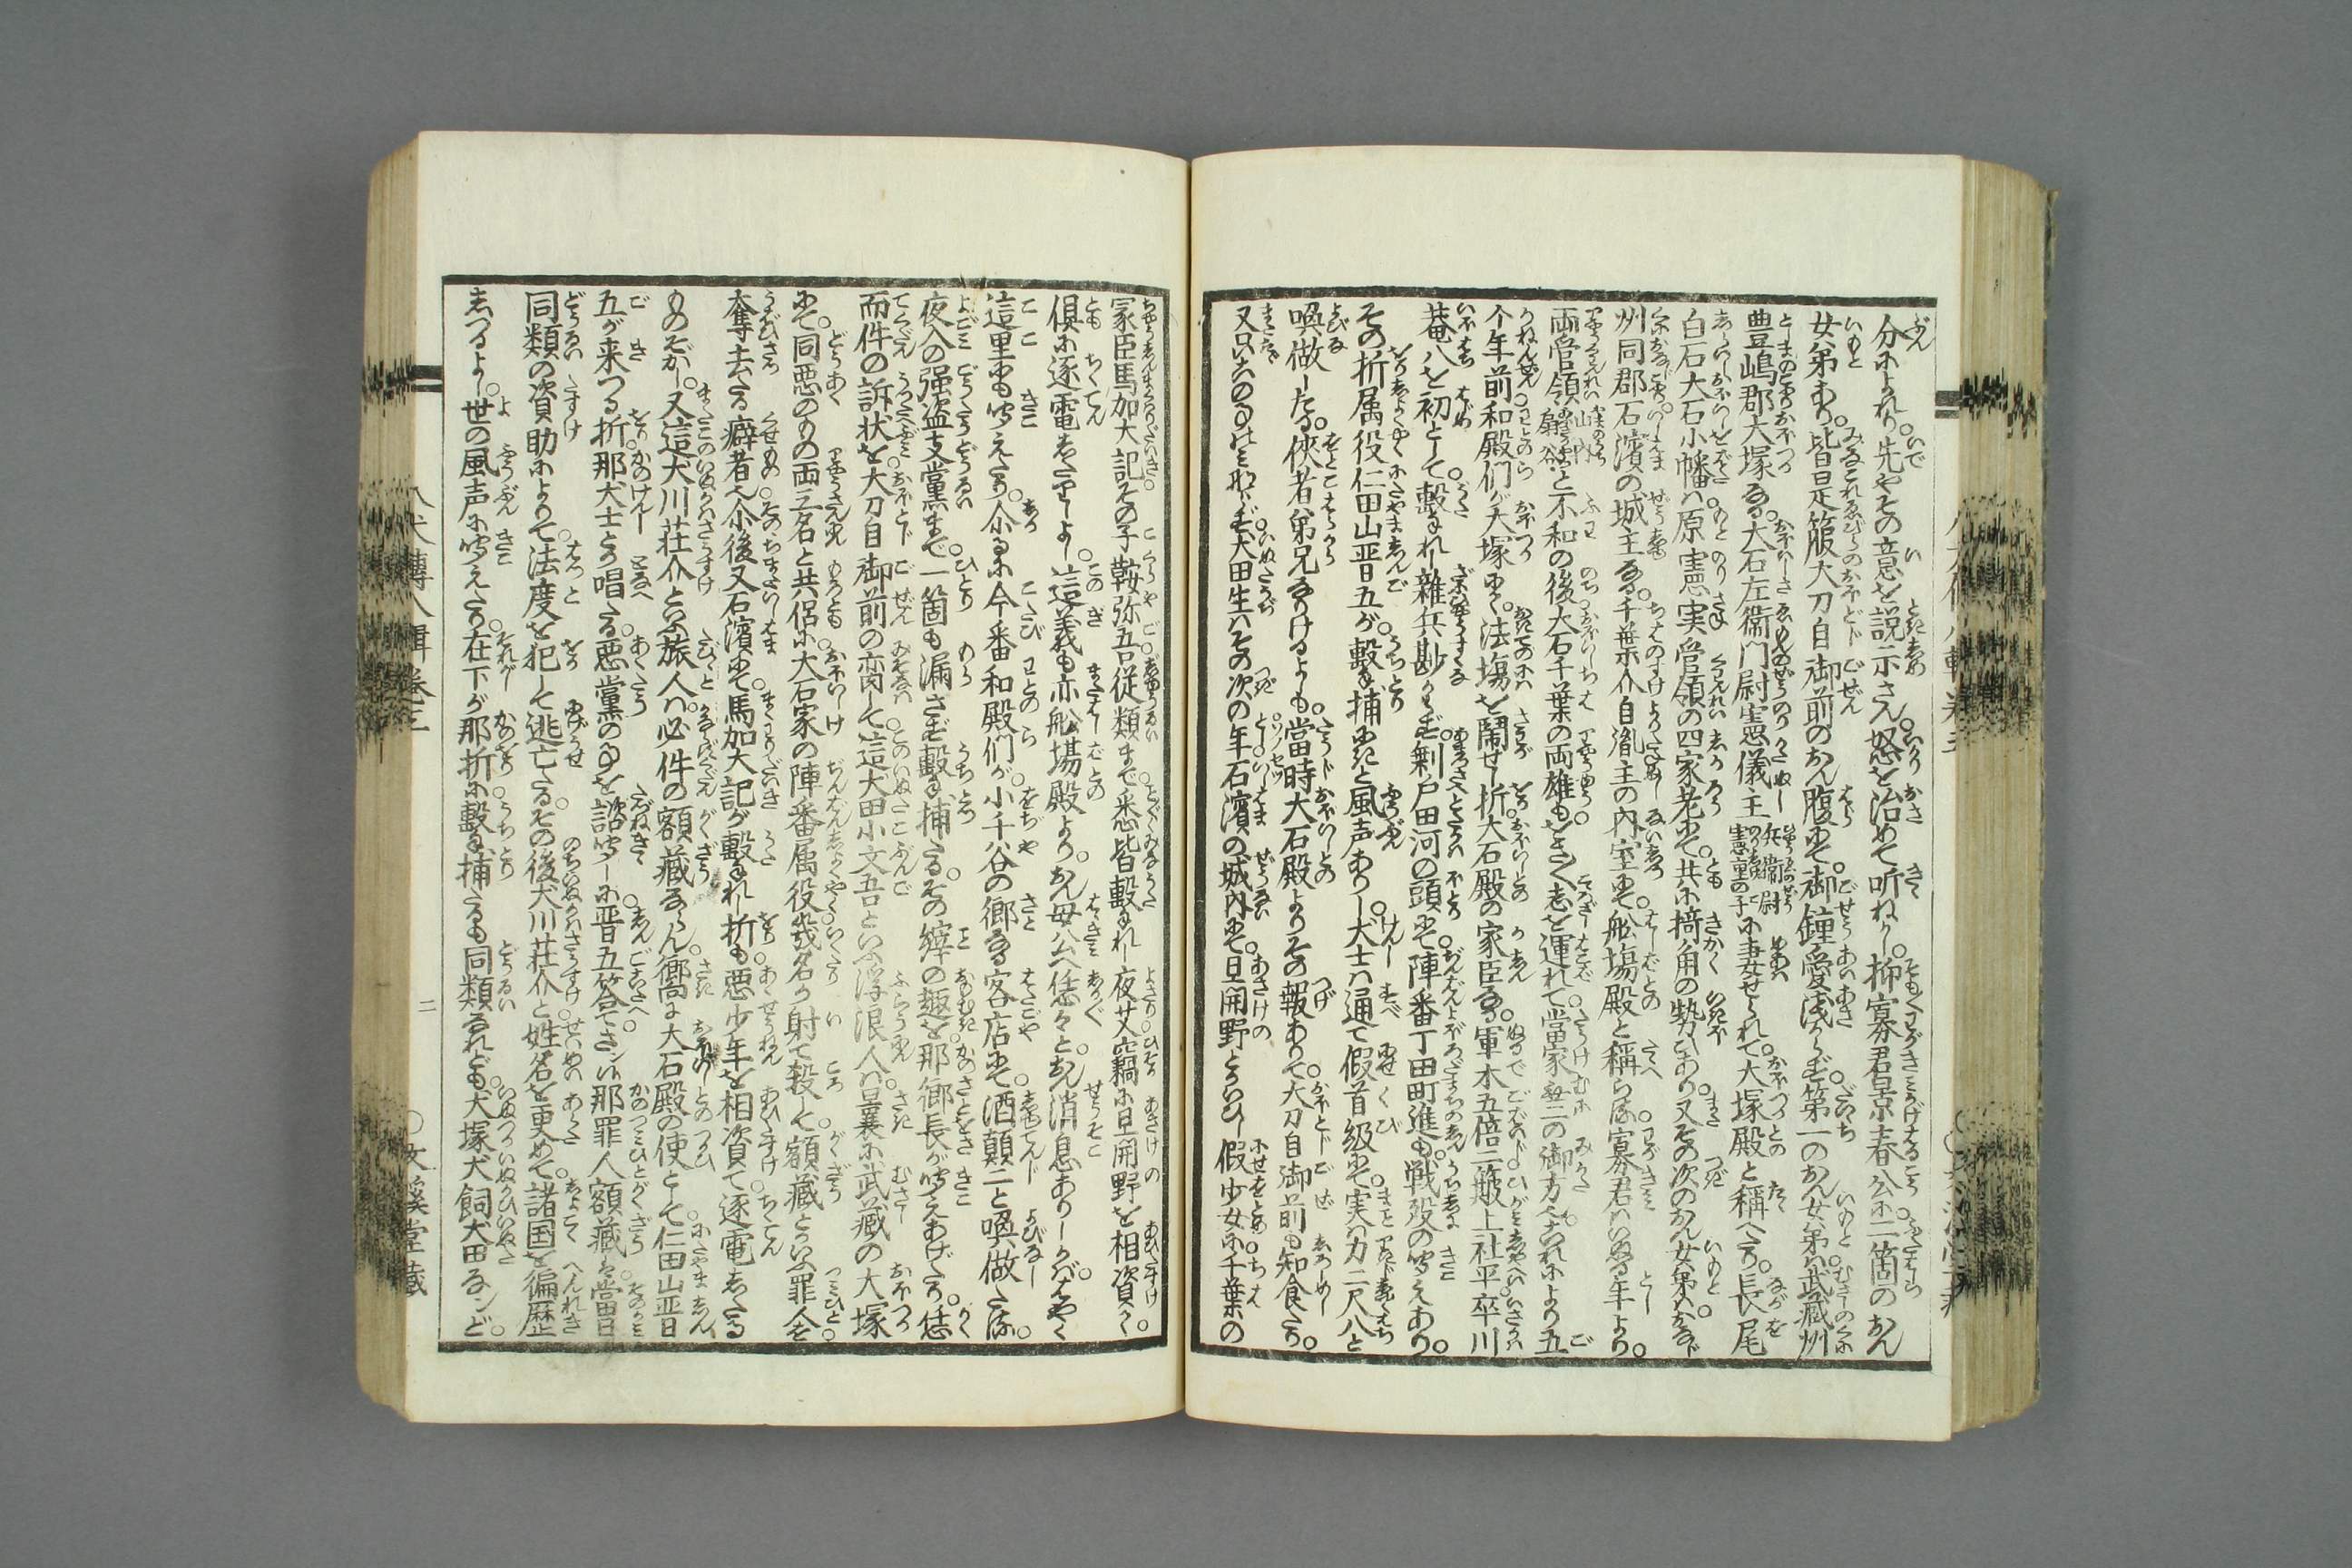 分によれり。先やその意を説示さん。怒を治めて听ねかし。抑寡君景春公に二箇のおん
女弟あり。皆是箙大刀自御前のおん腹にて。御鐘愛浅からず。第一のおん女弟は武藏州
豊嶋郡大塚なる。大石左衞門尉憲儀主兵衞尉憲重の子に妻せられて。大塚殿と稱へたり。長尾
白石大石小幡は。原憲実管領の四家老にて。共に掎角の勢ひあり。又その次のおん女弟は。おなじ
州同郡石濱の城主なる。千葉介自胤主の内室にて。舩塲殿と稱らる。寡君はいぬる年より。
両管領山内扇谷と不和の後。大石千葉の両雄も。をさをさ志を運れて。當家無二の御方ならねにより五
个年前和殿們が大塚にて。法塲を鬧せし折。大石殿の家臣なる。軍木五倍二簸上社平卒川
菴八を初として。轂れし雜兵尠からず。剰戸田河の頭にて。陣番丁田町進も。戦歿の聞えあり。
その折属役仁田山晋五が。轂捕にきと風声ありし。犬士は通て假首級にて。実は力二尺八と
喚做したる。俠者弟兄なりけるよしも。當時大石殿よりその報ありて。大刀自御前も知食たり。
又只このことのみならず。犬田生はその次の年。石濱の城内にて。旦開野といひし。假少女に千葉の
家臣馬加大記その子鞍弥吾。従類まで悉皆轂れし夜艾。竊に旦開野を相資けて。
倶に逐電したりしよし。這義も亦舩塲殿より。おん母公へ恁々と。おん消息ありしかば。はやく
這里にも聞えたり。介るに今番和殿們が。小千谷の郷なる客店にて。酒顛二と喚做たる。
夜入の强盗支黨まで。一箇も漏さず轂捕たる。その縡の趣を那郷長が聞えあげたり。恁
而件の訴状を。大刀自御前の脔して。這犬田小文吾といふ浮浪人は。曩に武藏の大塚
にて。同惡のもの両三名と共侶に。大石家の陣番属役幾名か射て殺して。額藏といふ罪人を
奪去たる癖者也。介後又石濱にて。馬加大記が轂れし折も。惡少年を相資て。逐電したる
ものぞかし。又這犬川荘介といふ旅人は。必件の額藏ならん。曏に大石殿の使として。仁田山晋
五が来つる折。那犬士とか唱たる。惡黨のことを諮聞しに。晋五答て。さン候那罪人額藏は。當日
同類の資助によりて。法度を犯して逃亡たる。その後犬川荘介と姓名を更めて。諸国を徧歴
しつるよし。世の風声に聞えたり。在下が那折に轂捕たるも同類なれども。犬塚犬飼犬田なンど。
八犬傳八輯巻三
二
○文溪堂藏